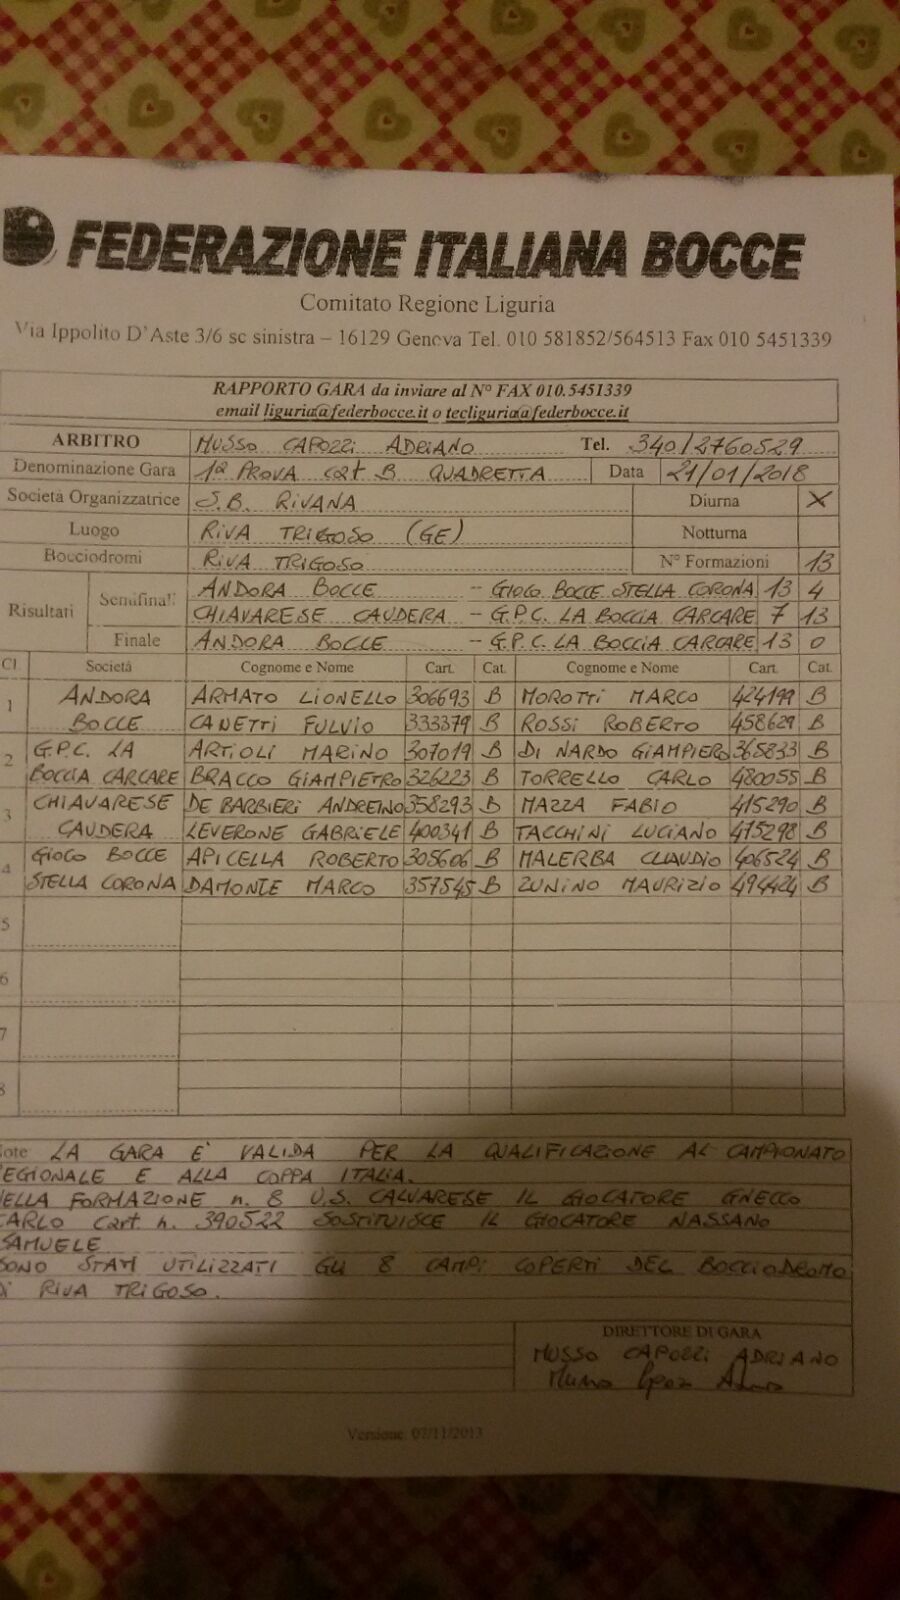 FEDERAZIONE ITALIANA BOCCE
Comitato Regione Liguria
Via Ippolito D'Aste 3/6 sc sinistra – 16129 Genova Tel. 010 581852/564513 Fax 010 5451339
RAPPORTO GARA da inviare al N° FAX 010.5451339
email liguria@federbocce.it o tecliguria@federbocce.it
ARBITRO MUSSO CAPOZZI ADRIANO Tel. 340/2760529
Denominazione Gara 1ª PROVA cat B QUADRETTA Data 21/01/2018
Società Organizzatrice S.B. RIVANA Diurna X
Luogo RIVA TRIGOSO (GE) Notturna
Bocciodromi RIVA TRIGOSO N° Formazioni 13
Risultati Semifinali ANDORA BOCCE – GIOCO BOCCE STELLA CORONA 13 4
CHIAVARESE CAUDERA – G.P.C. LA BOCCIA CARCARE 7 13
Finale ANDORA BOCCE – G.P.C. LA BOCCIA CARCARE 13 0
Cl Società Cognome e Nome Cart. Cat. Cognome e Nome Cart. Cat.
1 ANDORA ARMATO LIONELLO 306693 B MOROTTI MARCO 424199 B
BOCCE CANETTI FULVIO 333379 B ROSSI ROBERTO 458629 B
2 G.P.C. LA ARTIOLI MARINO 307019 B DI NARDO GIAMPIERO 365833 B
BOCCIA CARCARE BRACCO GIAMPIETRO 326223 B TORRELLO CARLO 480055 B
3 CHIAVARESE DE BARBIERI ANDREINO 358293 B MAZZA FABIO 415290 B
CAUDERA LEVERONE GABRIELE 400341 B TACCHINI LUCIANO 475298 B
4 GIOCO BOCCE APICELLA ROBERTO 305606 B MALERBA CLAUDIO 406524 B
STELLA CORONA DAMONTE MARCO 357545 B ZUNINO MAURIZIO 494424 B
5
6
7
8
ote LA GARA E' VALIDA PER LA QUALIFICAZIONE AL CAMPIONATO
EGIONALE E ALLA COPPA ITALIA.
NELLA FORMAZIONE n. 8 U.S. CALVARESE IL GIOCATORE GNECCO
CARLO cart n. 390522 SOSTITUISCE IL GIOCATORE NASSANO
SAMUELE
SONO STATI UTILIZZATI GLI 8 CAMPI COPERTI DEL BOCCIODROMO
DI RIVA TRIGOSO.
DIRETTORE DI GARA
MUSSO CAPOZZI ADRIANO
Versione 07/11/2013